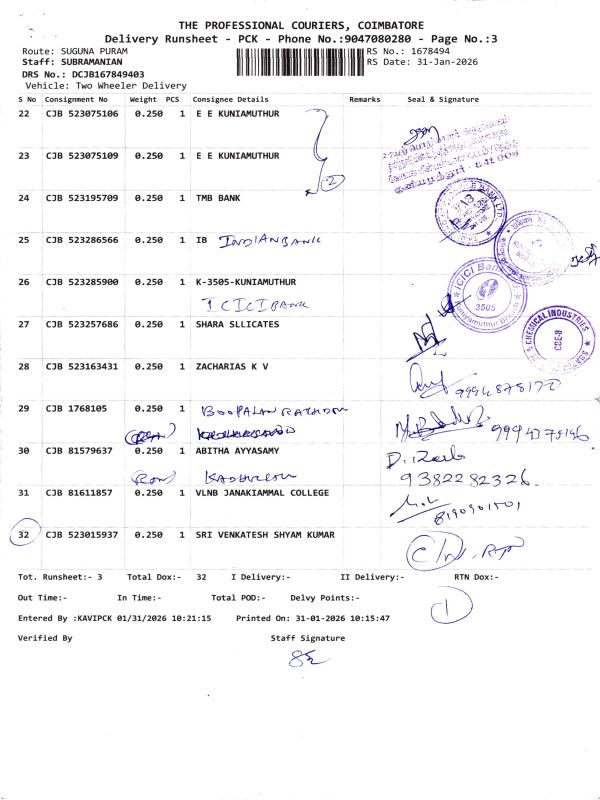 THE PROFESSIONAL COURIERS, COIMBATORE
Delivery Runsheet - PCK - Phone No.:9047080280 - Page No.:3
Route: SUGUNA PURAM RS No.: 1678494
Staff: SUBRAMANIAN RS Date: 31-Jan-2026
DRS No.: DCJB167849403
Vehicle: Two Wheeler Delivery
S No Consignment No Weight PCS Consignee Details Remarks Seal & Signature
22 CJB 523075106 0.250 1 E E KUNIAMUTHUR
23 CJB 523075109 0.250 1 E E KUNIAMUTHUR
2
24 CJB 523195709 0.250 1 TMB BANK
25 CJB 523286566 0.250 1 IB INDIAN BANK
26 CJB 523285900 0.250 1 K-3505-KUNIAMUTHUR
ICICI BANK
ICICI Bank
3505
Kuniyamuthur Branch
27 CJB 523257686 0.250 1 SHARA SLLICATES
CHEMICAL INDUSTRIES
CBE-8
28 CJB 523163431 0.250 1 ZACHARIAS K V
29 CJB 1768105 0.250 1
30 CJB 81579637 0.250 1 ABITHA AYYASAMY
9382282326
31 CJB 81611857 0.250 1 VLNB JANAKIAMMAL COLLEGE
32 CJB 523015937 0.250 1 SRI VENKATESH SHYAM KUMAR
Tot. Runsheet:- 3 Total Dox:- 32 I Delivery:- II Delivery:- RTN Dox:-
Out Time:- In Time:- Total POD:- Delvy Points:-
1
Entered By :KAVIPCK 01/31/2026 10:21:15 Printed On: 31-01-2026 10:15:47
Verified By Staff Signature